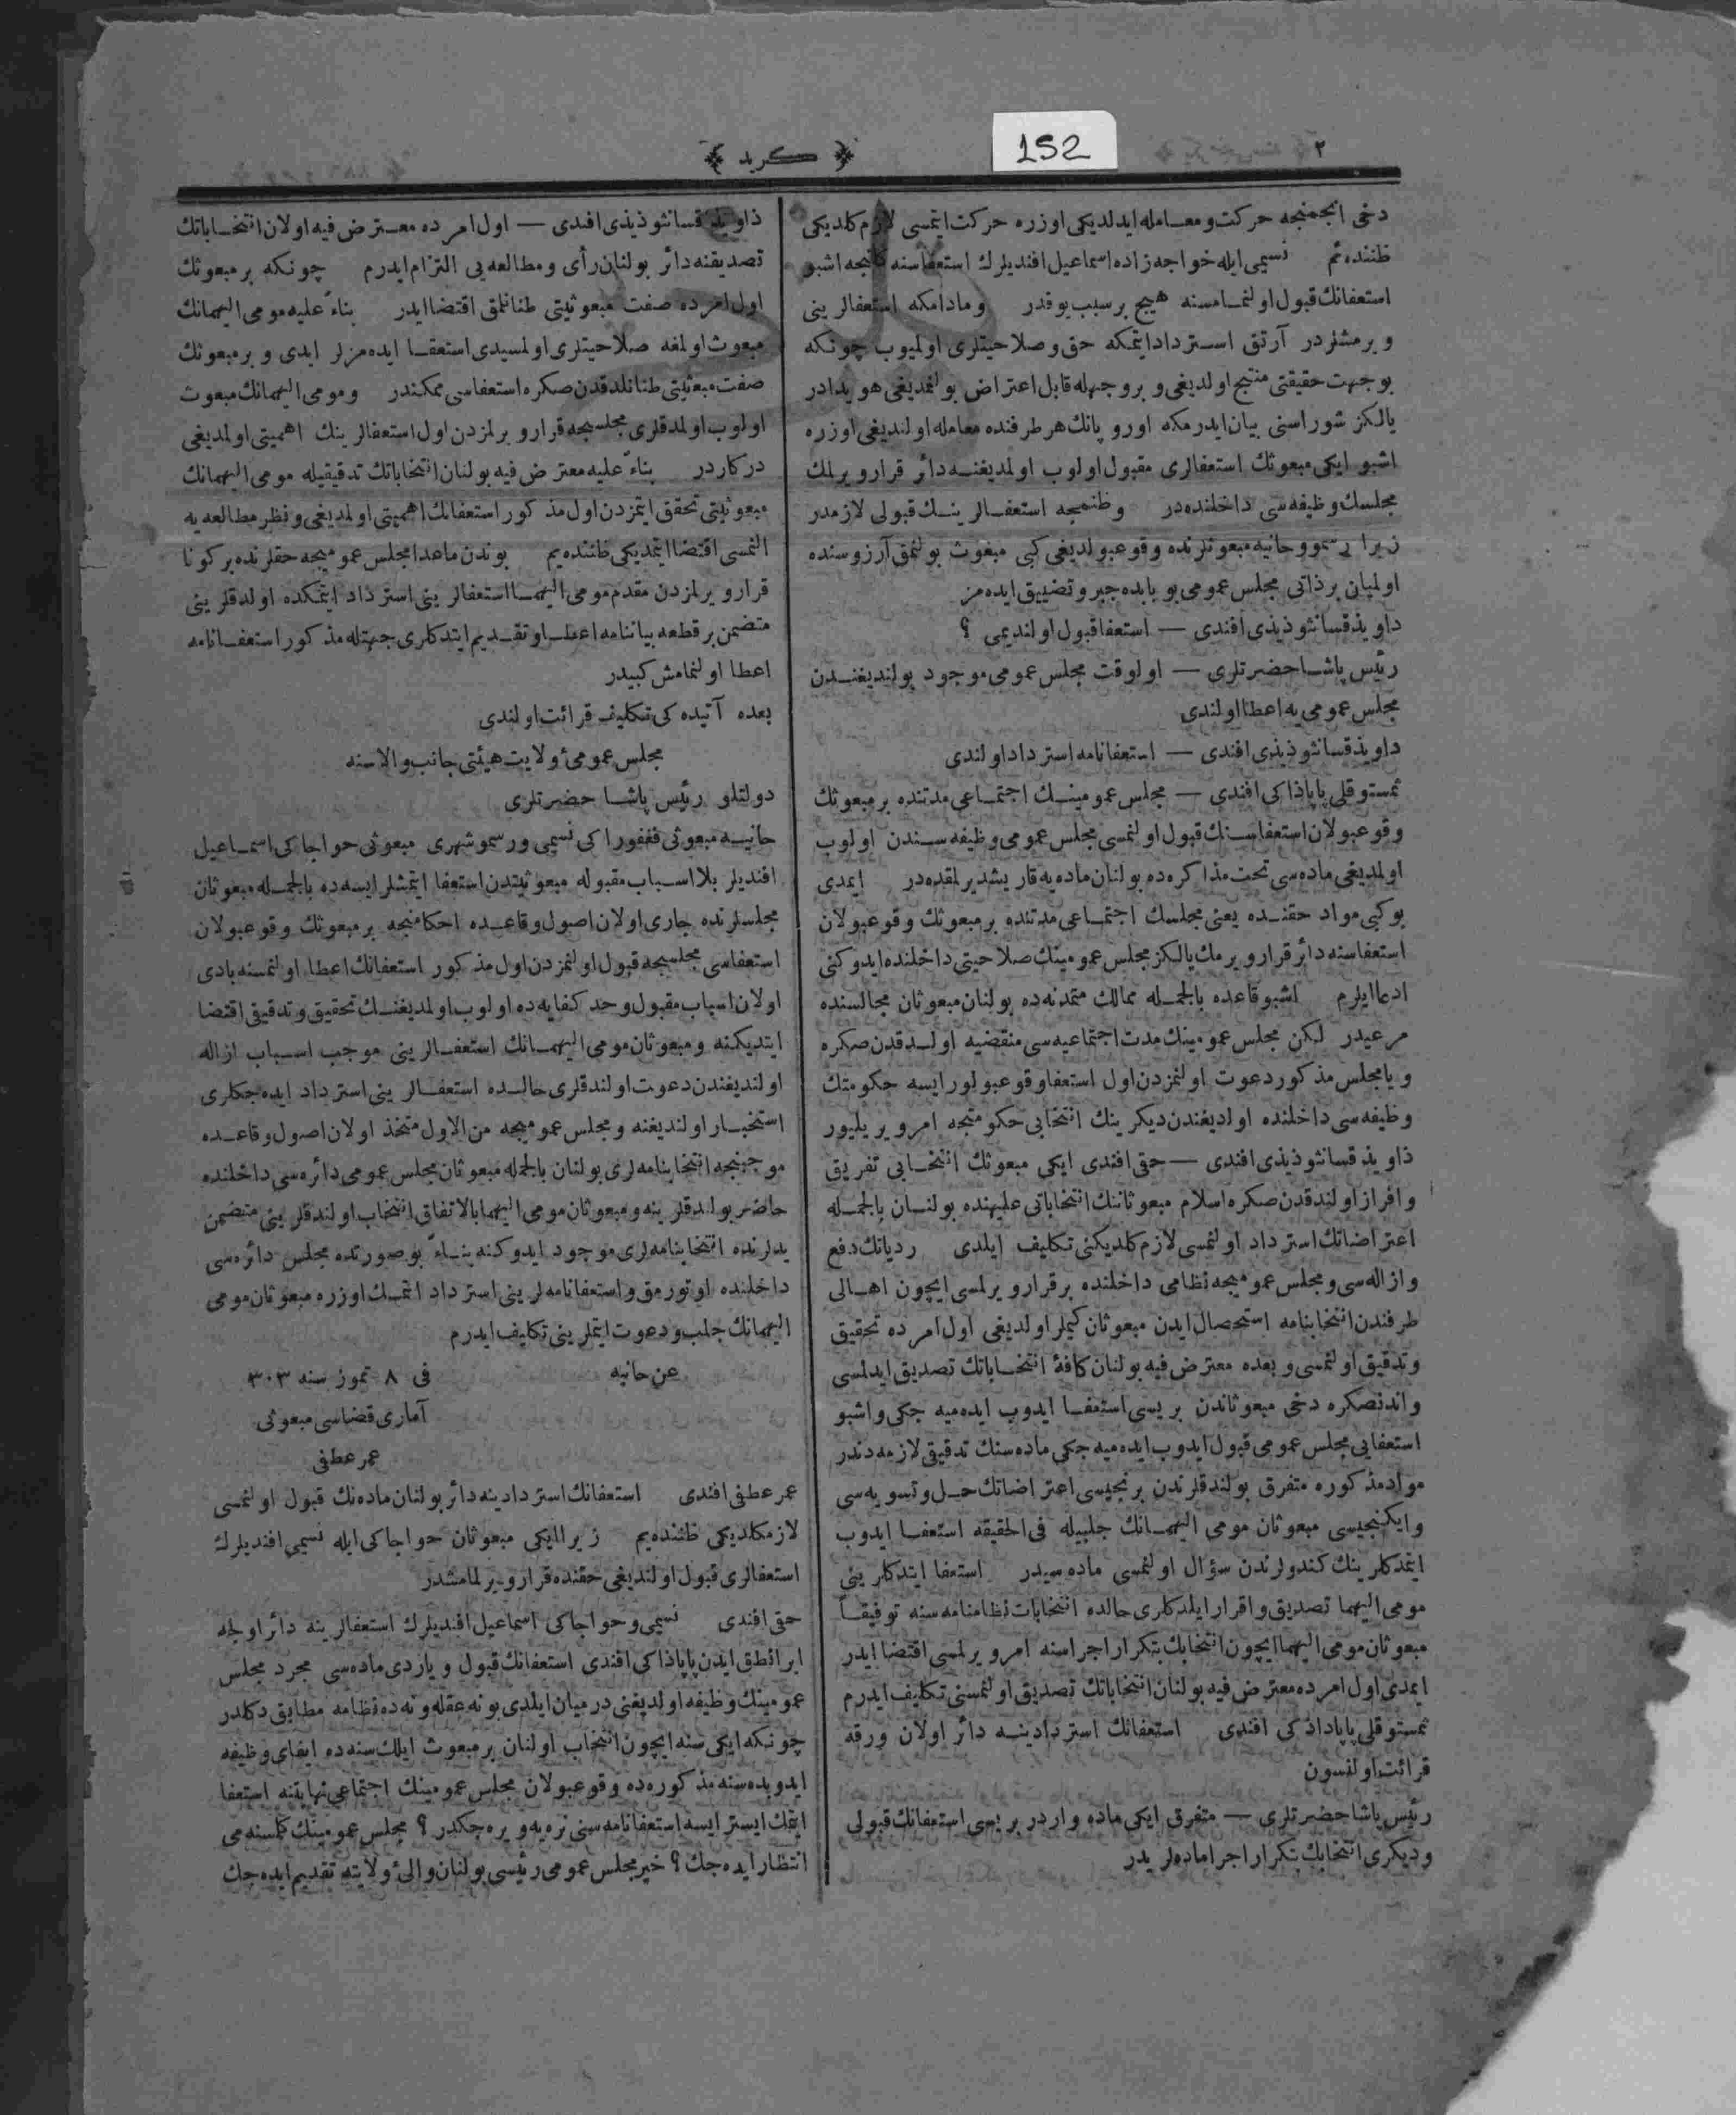 ٢
152
﴿ كريد ﴾
دخى انجمنجه حركت و معامله ايدلديكى اوزره حركت ايتمسى لازم كلديكى
ظننده‌ئم نسيمى ايله خواجه زاده اسماعيل افنديلرك استعفاسنه كلنجه اشبو
استعفانك قبول اولنمامسنه هيچ بر سبب يوقدر و مادامكه استعفالرينى
ويرمشلردر آرتق استرداد ايتمكه حق و صلاحيتلرى اولميوب چونكه
بوجهت حقيقتى منتج اولديغى و بروجهله قابل اعتراض بولنمديغى هويدادر
يالكز شوراسنى بيان ايدرمكه اوروپانك هر طرفنده معامله اولنديغى اوزره
اشبو ايكى مبعوثك استعفالرى مقبول اولوب اولمديغنه دائر قرار ويرلمك
مجلسك وظيفه‌سى داخلنده‌در وظنمجه استعفالرينك قبولى لازمدر
زيرا رسمو و حانيه مبعوثلرنده وقوعبولديغى كبى مبعوث بولنمق آرزوسنده
اولميان بر ذاتى مجلس عمومى بو بابده جبر و تضييق ايده‌مز
داويد قسانثوذيذى افندى — استعفا قبول اولنديمى ؟
رئيس پاشا حضرتلرى — اولوقت مجلس عمومى موجود بولنديغندن
مجلس عمومى‌يه اعطا اولندى
داويد قسانثوذيذى افندى — استعفانامه استرداد اولندى
ثمستوقلى پاپاذاكى افندى — مجلس عمومينك اجتماعى مدتنده بر مبعوثك
وقوعبولان استعفاسنك قبول اولنمسى مجلس عمومى وظيفه‌سندن اولوب
اولمديغى ماده‌سى تحت مذاكره‌ده بولنان ماده‌يه قاريشديرلمقده‌در ايمدى
بوكبى مواد حقنده يعنى مجلسك اجتماعى مدتنده بر مبعوثك وقوعبولان
استعفاسنه دائر قرار ويرمك يالكز مجلس عمومينك صلاحيتى داخلنده ايدوكنى
ادعا ايلرم اشبو قاعده بالجمله ممالك متمدنه‌ده بولنان مبعوثان مجالسنده
مرعيدر لكن مجلس عمومينك مدت اجتماعيه‌سى منقضيه اولدقدن صكره
ويا مجلس مذكور دعوت اولنمزدن اول استعفا وقوعبولور ايسه حكومتك
وظيفه‌سى داخلنده اولديغندن ديكرينك انتخابى حكومتجه امر ويريليور
ذاويذ قسانثوذيذى افندى — حقى افندى ايكى مبعوثك انتخابى تفريق
و افراز اولندقدن صكره اسلام مبعوثاننك انتخاباتى عليهنده بولنان بالجمله
اعتراضاتك استرداد اولنمسى لازم كلديكنى تكليف ايلدى رديانك دفع
وازاله‌سى و مجلس عموميجه نظامى داخلنده بر قرار ويرلمسى ايچون اهالى
طرفندن انتخابنامه استحصال ايدن مبعوثان كيملر اولديغى اول امرده تحقيق
وتدقيق اولنمسى و بعده معترض فيه بولنان كافهٔ انتخاباتك تصديق ايدلمسى
واندنصكره دخى مبعوثاندن بريسى استعفا ايدوب ايده‌ميه جكى و اشبو
استعفايى مجلس عمومى قبول ايدوب ايده‌ميه جكى ماده‌سنك تدقيقى لازمه‌دندر
مواد مذكوره متفرق بولندقلرندن برنجيسى اعتراضاتك حل و تسويه‌سى
وايكنجيسى مبعوثان مومى اليهمانك جلبيله فى الحقيقه استعفا ايدوب
ايتمدكلرينك كندولرندن سؤال اولنمسى ماده‌سيدر استعفا ايتدكلرينى
مومى اليهما تصديق و اقرار ايلدكلرى حالده انتخابات نظامنامه‌سنه توفيقاً
مبعوثان مومى اليهما ايچون انتخابك تكرار اجراسنه امر ويرلمسى اقتضا ايدر
ايمدى اول امرده معترض فيه بولنان انتخاباتك تصديق اولنمسنى تكليف ايدرم
ثمستوقلى پاپاذاكى افندى استعفانك استردادينه دائر اولان ورقه
قرائت اولنسون
رئيس پاشا حضرتلرى — متفرق ايكى ماده واردر بريسى استعفانك قبولى
وديكرى انتخابك تكرار اجرا ماده‌لريدر
ذاويذ قسانثوذيذى افندى — اول امرده معترض فيه اولان انتخاباتك
تصديقنه دائر بولنان رأى و مطالعه‌يى التزام ايدرم چونكه بر مبعوثك
اول امرده صفت مبعوثيتى طنانلمق اقتضا ايدر بناءً عليه مومى اليهمانك
مبعوث اولمغه صلاحيتلرى اولمسيدى استعفا ايده‌مزلر ايدى و بر مبعوثك
صفت مبعوثيتى طنانلدقدن صكره استعفاسى ممكندر ومومى اليهمانك مبعوث
اولوب اولمدقلرى مجلسجه قرار ويرلمزدن اول استعفالرينك اهميتى اولمديغى
دركاردر بناءً عليه معترض فيه بولنان انتخاباتك تدقيقيله مومى اليهمانك
مبعوثيتى تحقق ايتمزدن اول مذكور استعفانك اهميتى اولمديغى و نظر مطالعه‌يه
النمسى اقتضا ايتمديكى ظننده‌يم بوندن ماعدا مجلس عموميجه حقلرنده بر كونا
قرار ويرلمزدن مقدم مومى اليهما استعفالرينى استرداد ايتمكده اولدقلرينى
متضمن بر قطعه بياننامه اعطا و تقديم ايتدكلرى جهتله مذكور استعفانامه
اعطا اولنمامش كبيدر
بعده آتيده كى تكليف قرائت اولندى
مجلس عمومىٔ ولايت هيئتى جانب والاسنه
دولتلو رئيس پاشا حضرتلرى
حانيه مبعوثى فغفوراكى نسيمى و رسمو شهرى مبعوثى حواجاكى اسماعيل
افنديلر بلا اسباب مقبوله مبعوثيتدن استعفا ايتمشلر ايسه‌ده بالجمله مبعوثان
مجلسلرنده جارى اولان اصول و قاعده احكامنجه بر مبعوثك وقوعبولان
استعفاسى مجلسجه قبول اولنمزدن اول مذكور استعفانك اعطا اولنمسنه بادى
اولان اسباب مقبول و حد كفايه‌ده اولوب اولمديغنك تحقيق و تدقيقى اقتضا
ايتديكنه و مبعوثان مومى اليهمانك استعفالرينى موجب اسباب ازاله
اولنديغندن دعوت اولندقلرى حالده استعفالرينى استرداد ايده‌جكلرى
استخبار اولنديغنه و مجلس عموميجه من الاول متخذ اولان اصول و قاعده
موجبنجه انتخابنامه‌لرى بولنان بالجمله مبعوثان مجلس عمومى دائره‌سى داخلنده
حاضر بولندقلرينه و مبعوثان مومى اليهما بالاتفاق انتخاب اولندقلرينى متضمن
يدلرنده انتخابنامه‌لرى موجود ايدوكنه بناءً بو صورتده مجلس دائره‌سى
داخلنده اوتورمق و استعفانامه‌لرينى استرداد ايتمك اوزره مبعوثان مومى
اليهمانك جلب و دعوت ايتملرينى تكليف ايدرم
عن حانيه فى ٨ تموز سنه ٣٠٣
آمارى قضاسى مبعوثى
عمر عطفى
عمر عطفى افندى استعفانك استردادينه دائر بولنان ماده‌نك قبول اولنمسى
لازمكلديكى ظننده‌يم زيرا ايكى مبعوثان حواجاكى ايله نسيمى افنديلرك
استعفالرى قبول اولنديغى حقنده قرار ويرلمامشدر
حقى افندى نسيمى و حواجاكى اسماعيل افنديلرك استعفالرينه دائر اولجه
ايراد نطق ايدن پاپاذاكى افندى استعفانك قبول و يا ردى ماده‌سى مجرد مجلس
عمومينك وظيفه اولديغنى درميان ايلدى بو نه عقله و نه ده نظامه مطابق دكلدر
چونكه ايكى سنه ايچون انتخاب اولنان بر مبعوث ايلك سنه‌ده ايفاى وظيفه
ايدوبده سنه مذكوره‌ده وقوعبولان مجلس عمومينك اجتماعى نهايتنه استعفا
ايتمك ايستر ايسه استعفانامه‌سنى نره‌يه ويره‌جكدر ؟ مجلس عمومينك كلمسنه‌مى
انتظار ايده‌جك ؟ خير مجلس عمومى رئيسى بولنان والىٔ ولايته تقديم ايده‌جك